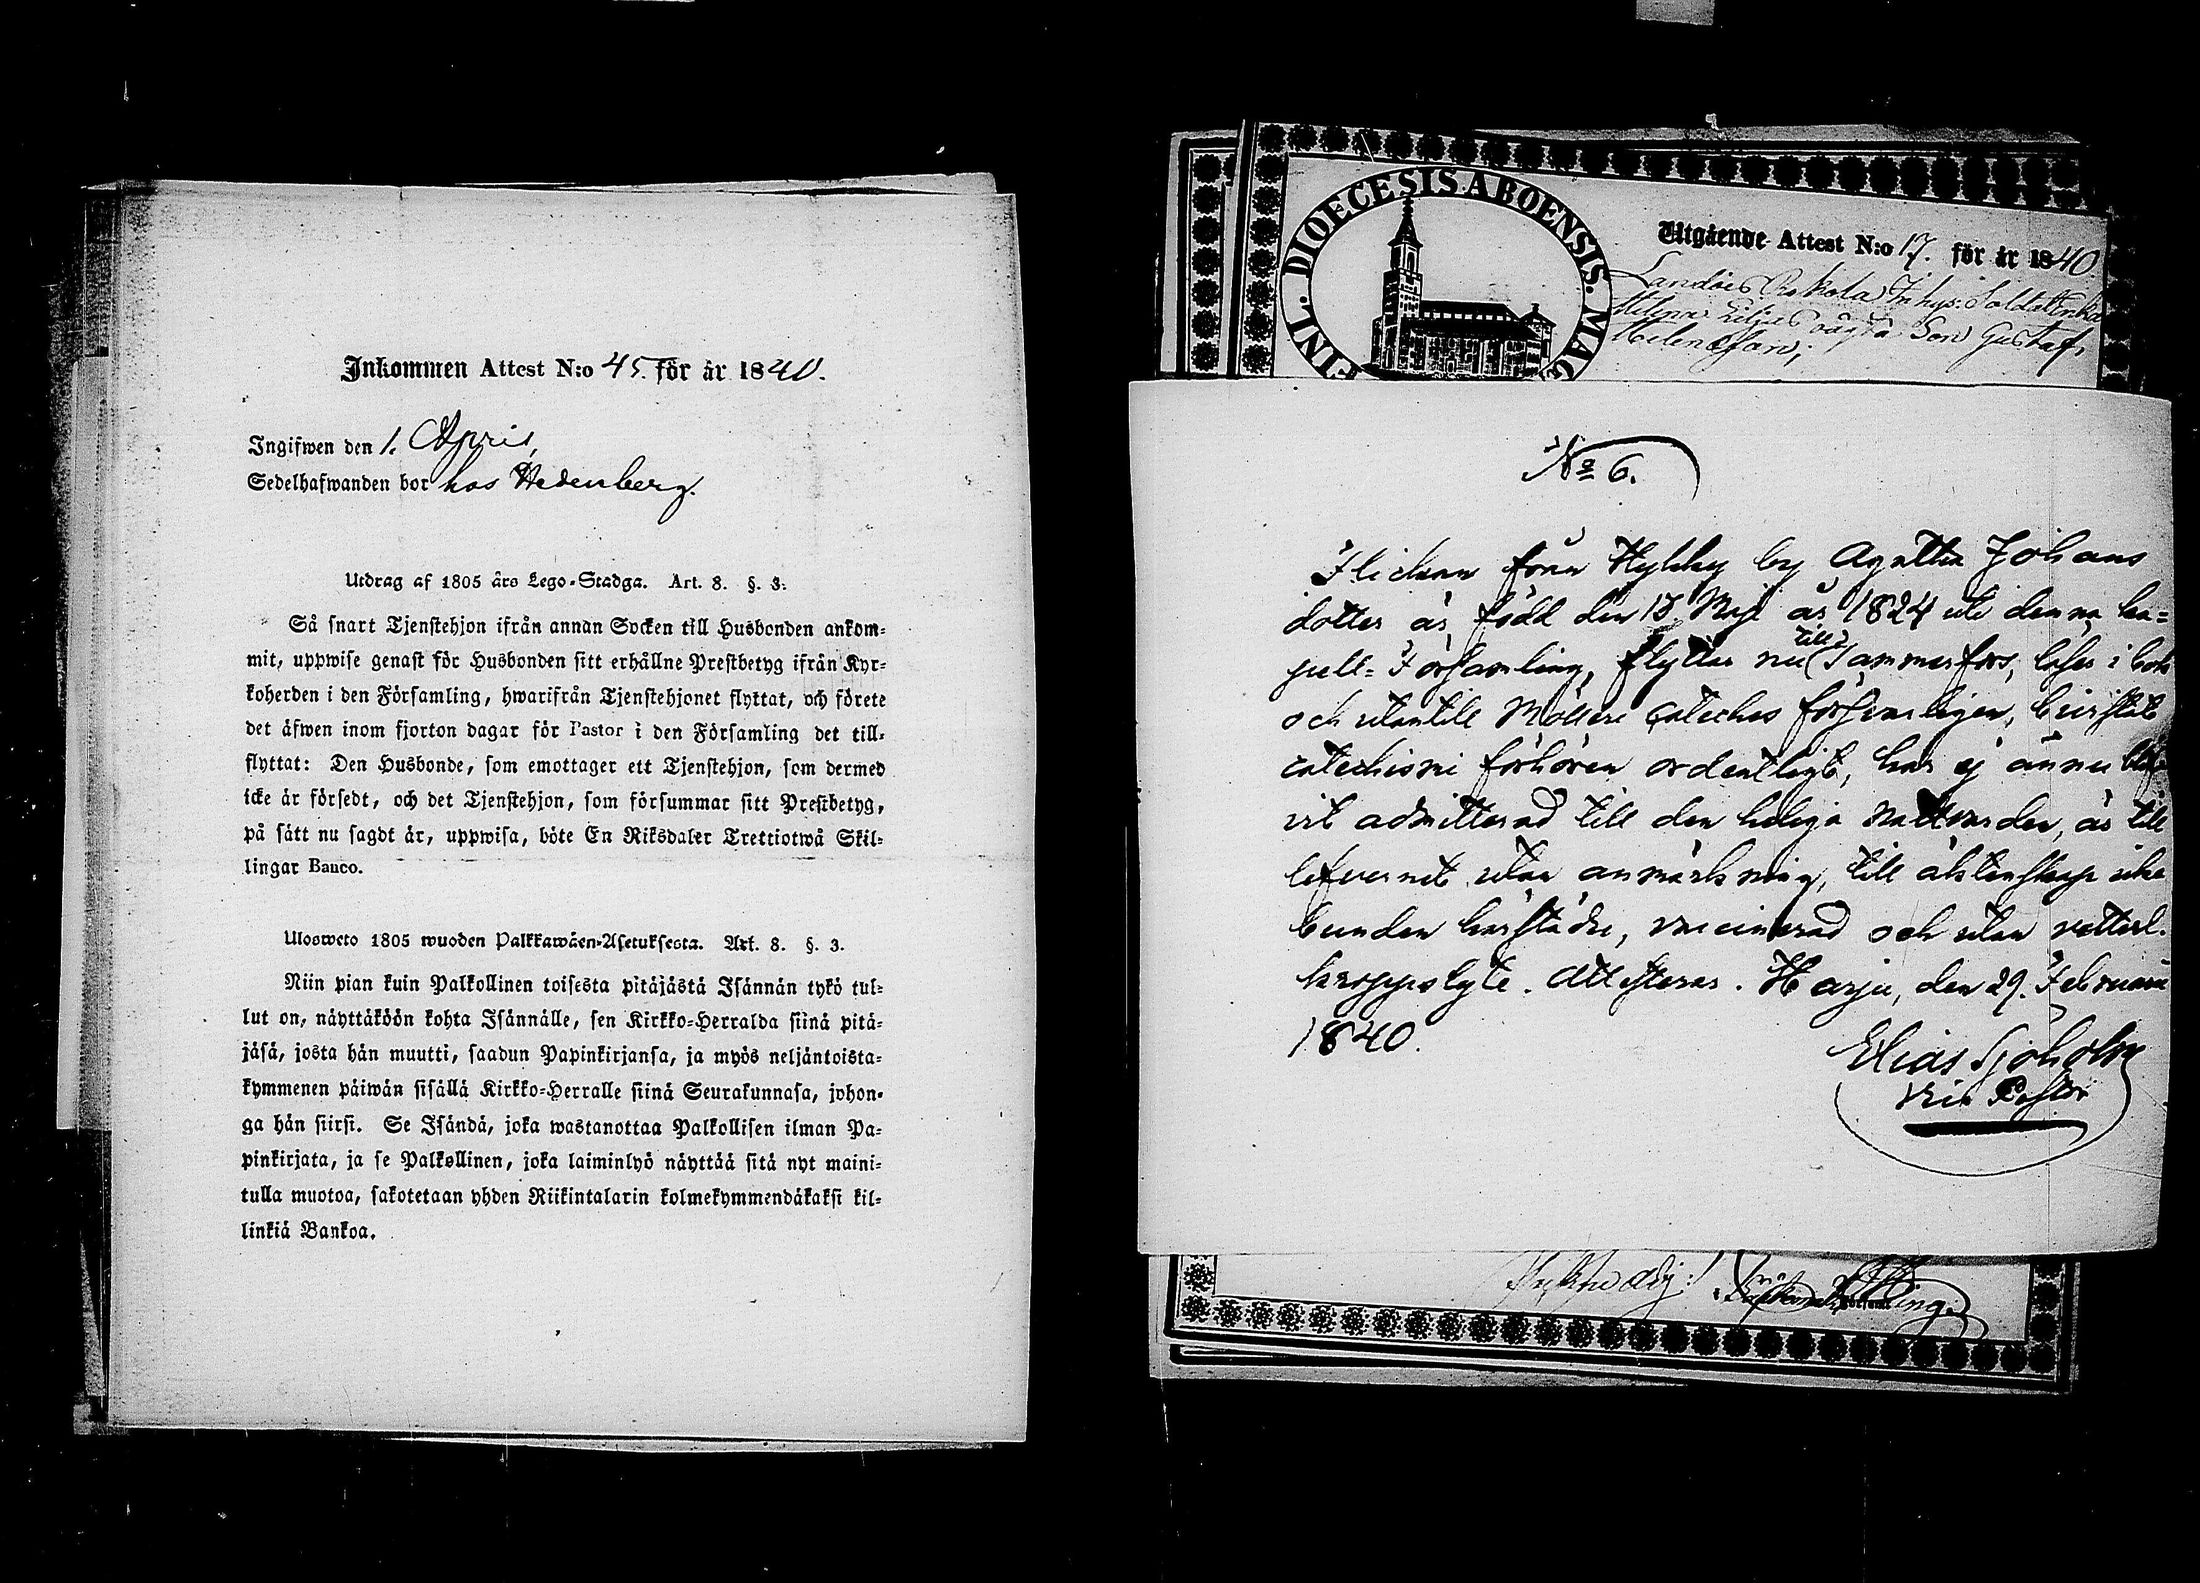 Inkommen Attest N:o 45. för år 1840.
Ingifwen den 1. April,
Sedelhafwanden bor hos Hedenberg.
Utdrag af 1805 års Lego-Stadga. Art. 8. §. 3.
Så snart Tjenstehjon ifrån annan Socken till Husbonden ankom-
mit, uppwise genast för Husbonden sitt erhållne Prestbetyg ifrån Kyr-
koherden i den Församling, hwarifrån Tjenstehjonet flyttat, och förete
det äfwen inom fjorton dagar för Pastor i den Församling det till-
flyttat: Den Husbonde, som emottager ett Tjenstehjon, som dermed
icke är försedt, och det Tjenstehjon, som försummar sitt Prestbetyg,
på sätt nu sagdt är, uppwisa, böte En Riksdaler Trettiotwå Skil-
lingar Banco.
Ulosweto 1805 wuoden Palkkawäen-Asetuksesta. Art. 8. §. 3.
Niin pian kuin Palkollinen toisesta pitäjästä Isännän tykö tul-
lut on, näyttäköön kohta Isännälle, sen Kirkko-Herralda siinä pitä-
jäsä, josta hän muutti, saadun Papinkirjansa, ja myös neljäntoista-
kymmenen päiwän sisällä Kirkko-Herralle siinä Seurakunnasa, johon-
ga hän siirsi. Se Isändä, joka wastanottaa Palkollisen ilman Pa-
pinkirjata, ja se Palkollinen, joka laiminlyö näyttää sitä nyt maini-
tulla muotoa, sakotetaan yhden Riikintalarin kolmekymmendäkaksi kil-
linkiä Bankoa.
FINL. DIOECESIS ABOENSIS. MAG
Utgående Attest N:o 17. för år 1840
Inhys. Soldatenka
Son Gustaf
No 6.
Flickan från Hykky by Agatha Johans
dotter är född den 15 Maji år 1824 uti denna ka-
pell-Församling, flyttar nu till Tammerfors, läser i bok
och utantill Möllers Cateches försvarligen, bevistat
catechismi förhören ordentligt, har ej ännu blif-
vit admitterad till den heliga Nattvarden, är till
lefvernet utan anmärkning, till äktenskap icke
bunden härstädes, vaccinerad och utan vetterl.
kroppslyte. Attesteras. Harju, den 29. Februarii
1840.
Elias Sjöholm
Vice Pastor